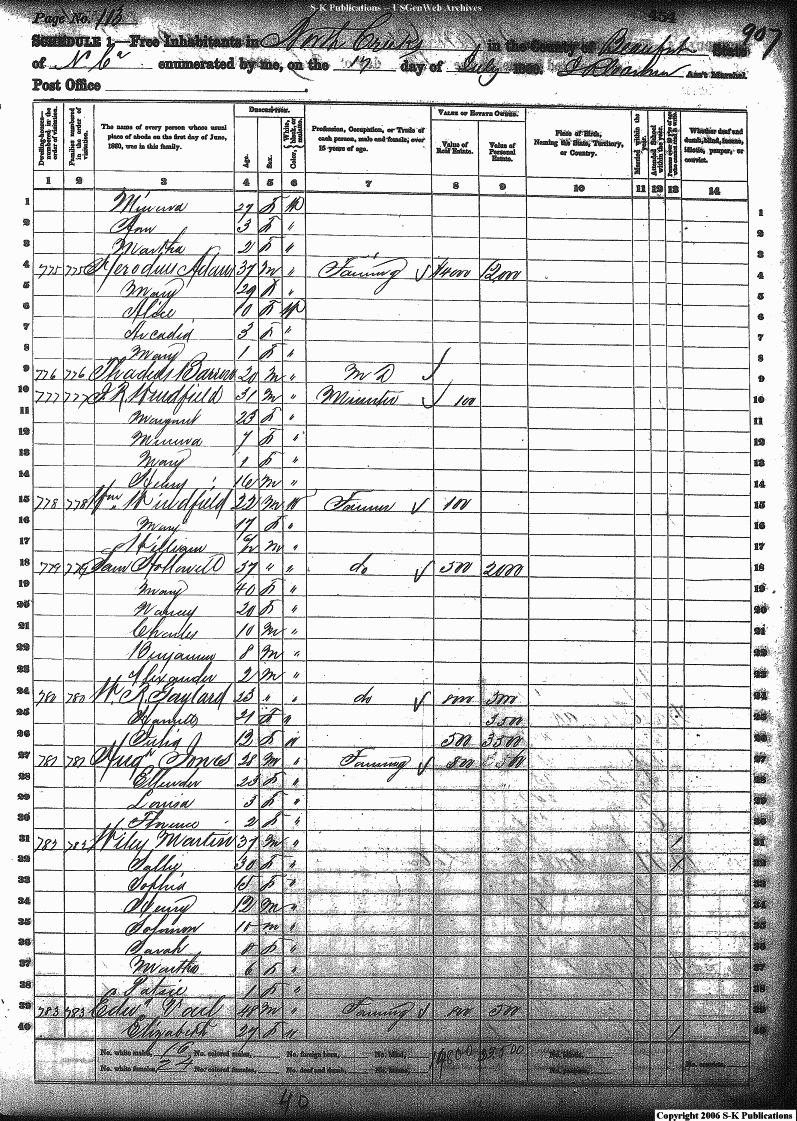 S-K Publications -- USGenWeb Archives
Page No. 113
454
907
SCHEDULE 1.—Free Inhabitants in North Creek in the County of Beaufort State
of N Ca enumerated by me, on the 17 day of July 1860. Ass't Marshal.
Post Office
Dwelling-houses—numbered in the order of visitation.
Families numbered in the order of visitation.
The name of every person whose usual place of abode on the first day of June, 1860, was in this family.
DESCRIPTION.
Age.
Sex.
Color, White, black, or mulatto.
Profession, Occupation, or Trade of each person, male and female, over 15 years of age.
VALUE OF ESTATE OWNED.
Value of Real Estate.
Value of Personal Estate.
Place of Birth, Naming the State, Territory, or Country.
Married within the year.
Attended School within the year.
Whether deaf and dumb, blind, insane, idiotic, pauper, or convict.
1 2 3 4 5 6 7 8 9 10 11 12 13 14
1 Minerva 27 F W 1
2 Ann 3 F " 2
3 Martha 2 F " 3
4 775 775 Adams 37 M " Farming 4000 12000 4
5 Mary 29 F " 5
6 Alice 10 F W 6
7 Arcadia 3 F " 7
8 Mary 1 F " 8
9 776 776 Thadeus Barrow 20 M " M D 9
10 777 777 Windfield 31 M " Minister 100 10
11 Margaret 23 F " 11
12 Minerva 7 F " 12
13 Mary 1 F " 13
14 Henry 16 M " 14
15 778 778 Wm Windfield 22 M W Farmer 100 15
16 Mary 17 F " 16
17 William M " 17
18 779 779 Sam Hollowell 37 " " do 500 2000 18
19 Mary 40 F " 19
20 Nancy 20 F " 20
21 Charles 10 M " 21
22 Benjamin 8 M " 22
23 Alexander 2 M " 23
24 780 780 Gaylard 23 " " do 800 300 24
25 F " 3500 25
26 Julia 12 F W 500 3500 26
27 781 781 Hugh Jones 28 M " Farming 800 27
28 23 F " 28
29 Louisa 3 F " 29
30 Florence 2 F " 30
31 782 782 Wiley Martin 37 M " / 31
32 Sally 30 F " / 32
33 Sophia 15 F " 33
34 Henry 12 M " 34
35 Solomon 10 M " 35
36 Sarah 8 F " 36
37 Martha 6 F " 37
38 1 F " 38
39 783 783 Edwd 48 M " Farming 500 39
40 Elizabeth 27 F " / 40
No. white males, 16 No. colored males, No. foreign born, No. blind, No. idiotic,
No. white females, 24 No. colored females, No. deaf and dumb, No. insane, No. paupers, No. convicts,
40
Copyright 2006 S-K Publications